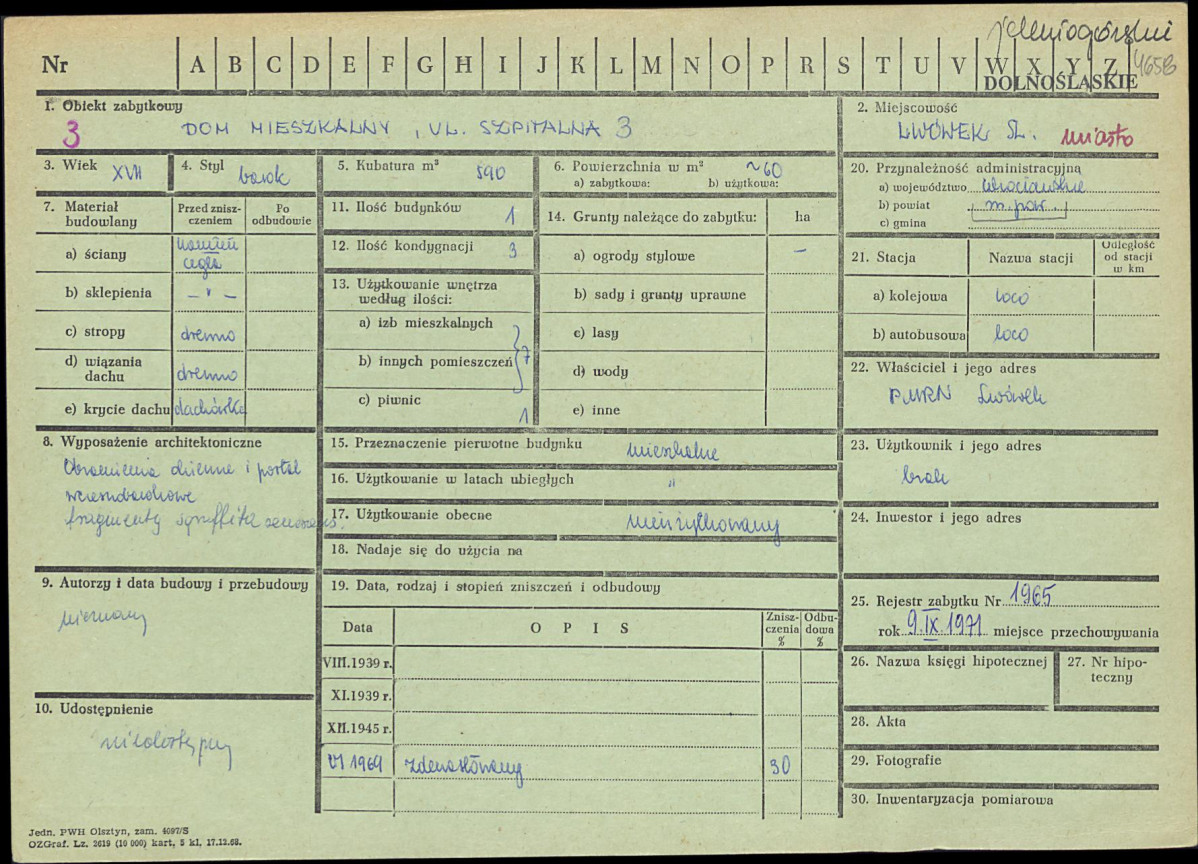 jeleniogórskie
4658
Nr A B C D E F G H I J K L M N O P R S T U V W X Y Z
DOLNOŚLĄSKIE
1. Obiekt zabytkowy
3
DOM MIESZKALNY, UL. SZPITALNA 3
2. Miejscowość
LWÓWEK ŚL. miasto
3. Wiek XVII
4. Styl barok
5. Kubatura m³ 590
6. Powierzchnia w m² ~60
a) zabytkowa: b) użytkowa:
7. Materiał budowlany
Przed zniszczeniem
Po odbudowie
a) ściany kamień cegła
b) sklepienia — " —
c) stropy drewno
d) wiązania dachu drewno
e) krycie dachu dachówka
8. Wyposażenie architektoniczne
Obramienia okienne i portal
wczesnobarokowe
fragmenty sgraffita renesans.
9. Autorzy i data budowy i przebudowy
nieznany
10. Udostępnienie
niedostępny
11. Ilość budynków 1
12. Ilość kondygnacji 3
13. Użytkowanie wnętrza
według ilości:
a) izb mieszkalnych
b) innych pomieszczeń 7
c) piwnic 1
14. Grunty należące do zabytku: ha
a) ogrody stylowe —
b) sady i grunty uprawne
c) lasy
d) wody
e) inne
15. Przeznaczenie pierwotne budynku mieszkalne
16. Użytkowanie w latach ubiegłych "
17. Użytkowanie obecne nieużytkowany
18. Nadaje się do użycia na
19. Data, rodzaj i stopień zniszczeń i odbudowy
Data O P I S Zniszczenia % Odbudowa %
VIII.1939 r.
XI.1939 r.
XII.1945 r.
VI 1969 zdewastowany 30
20. Przynależność administracyjna
a) województwo wrocławskie
b) powiat m. pow.
c) gmina
21. Stacja Nazwa stacji Odległość od stacji w km
a) kolejowa loco
b) autobusowa loco
22. Właściciel i jego adres
PMRN Lwówek
23. Użytkownik i jego adres
brak
24. Inwestor i jego adres
25. Rejestr zabytku Nr 1965
rok 9.IX 1971 miejsce przechowywania
26. Nazwa księgi hipotecznej
27. Nr hipoteczny
28. Akta
29. Fotografie
30. Inwentaryzacja pomiarowa
Jedn. PWH Olsztyn, zam. 4097/S
OZGraf. Lz. 2619 (10 000) kart. 5 kl. 17.12.68.